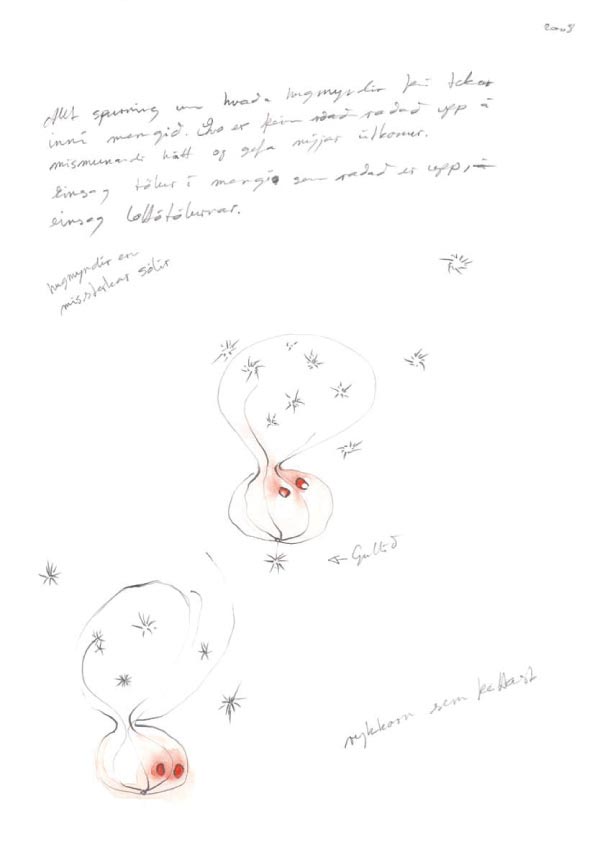 2008
Allt spurning um hvaða hugmyndir þú tekur
inní mengið. Svo er þeim raðað upp á
mismunandi hátt og gefa nýjar útkomur.
Einsog tölur í mengi sem raðað er upp,
einsog lottótölurnar.
hugmyndir eru
missterkar sólir
← Gullið
rykkorn sem þéttast